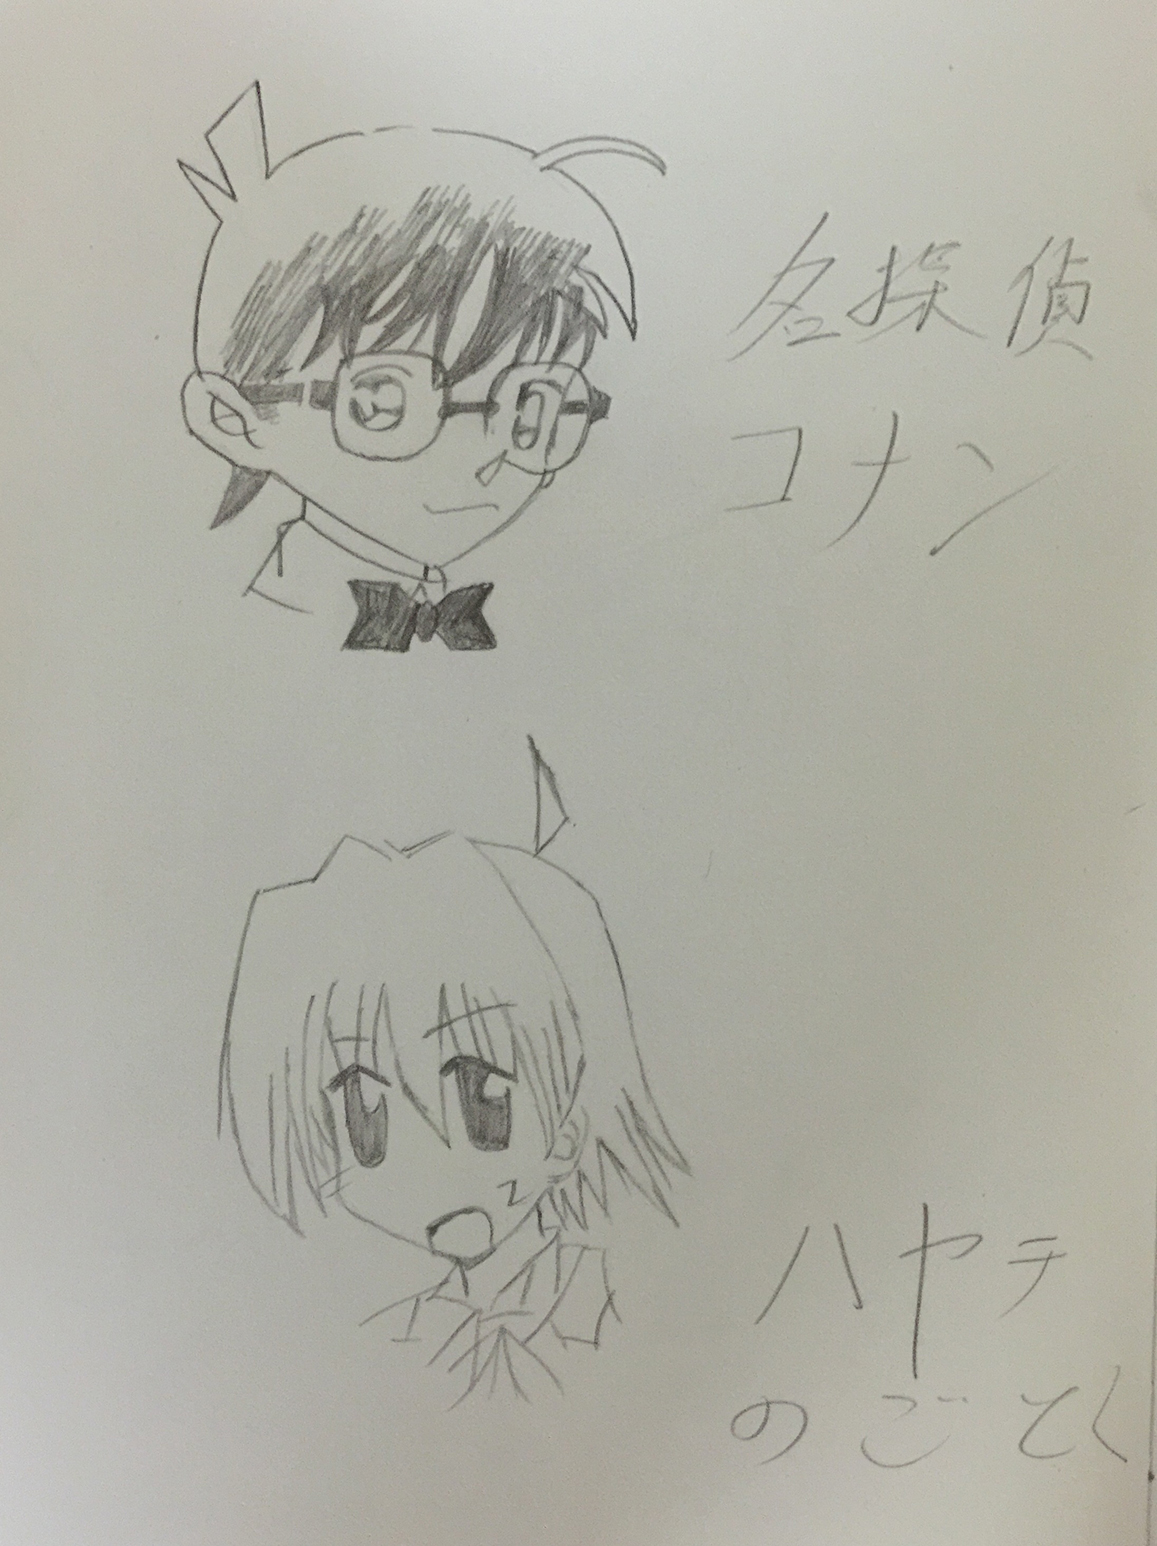 名探偵
コナン
ハヤテ
のごとく